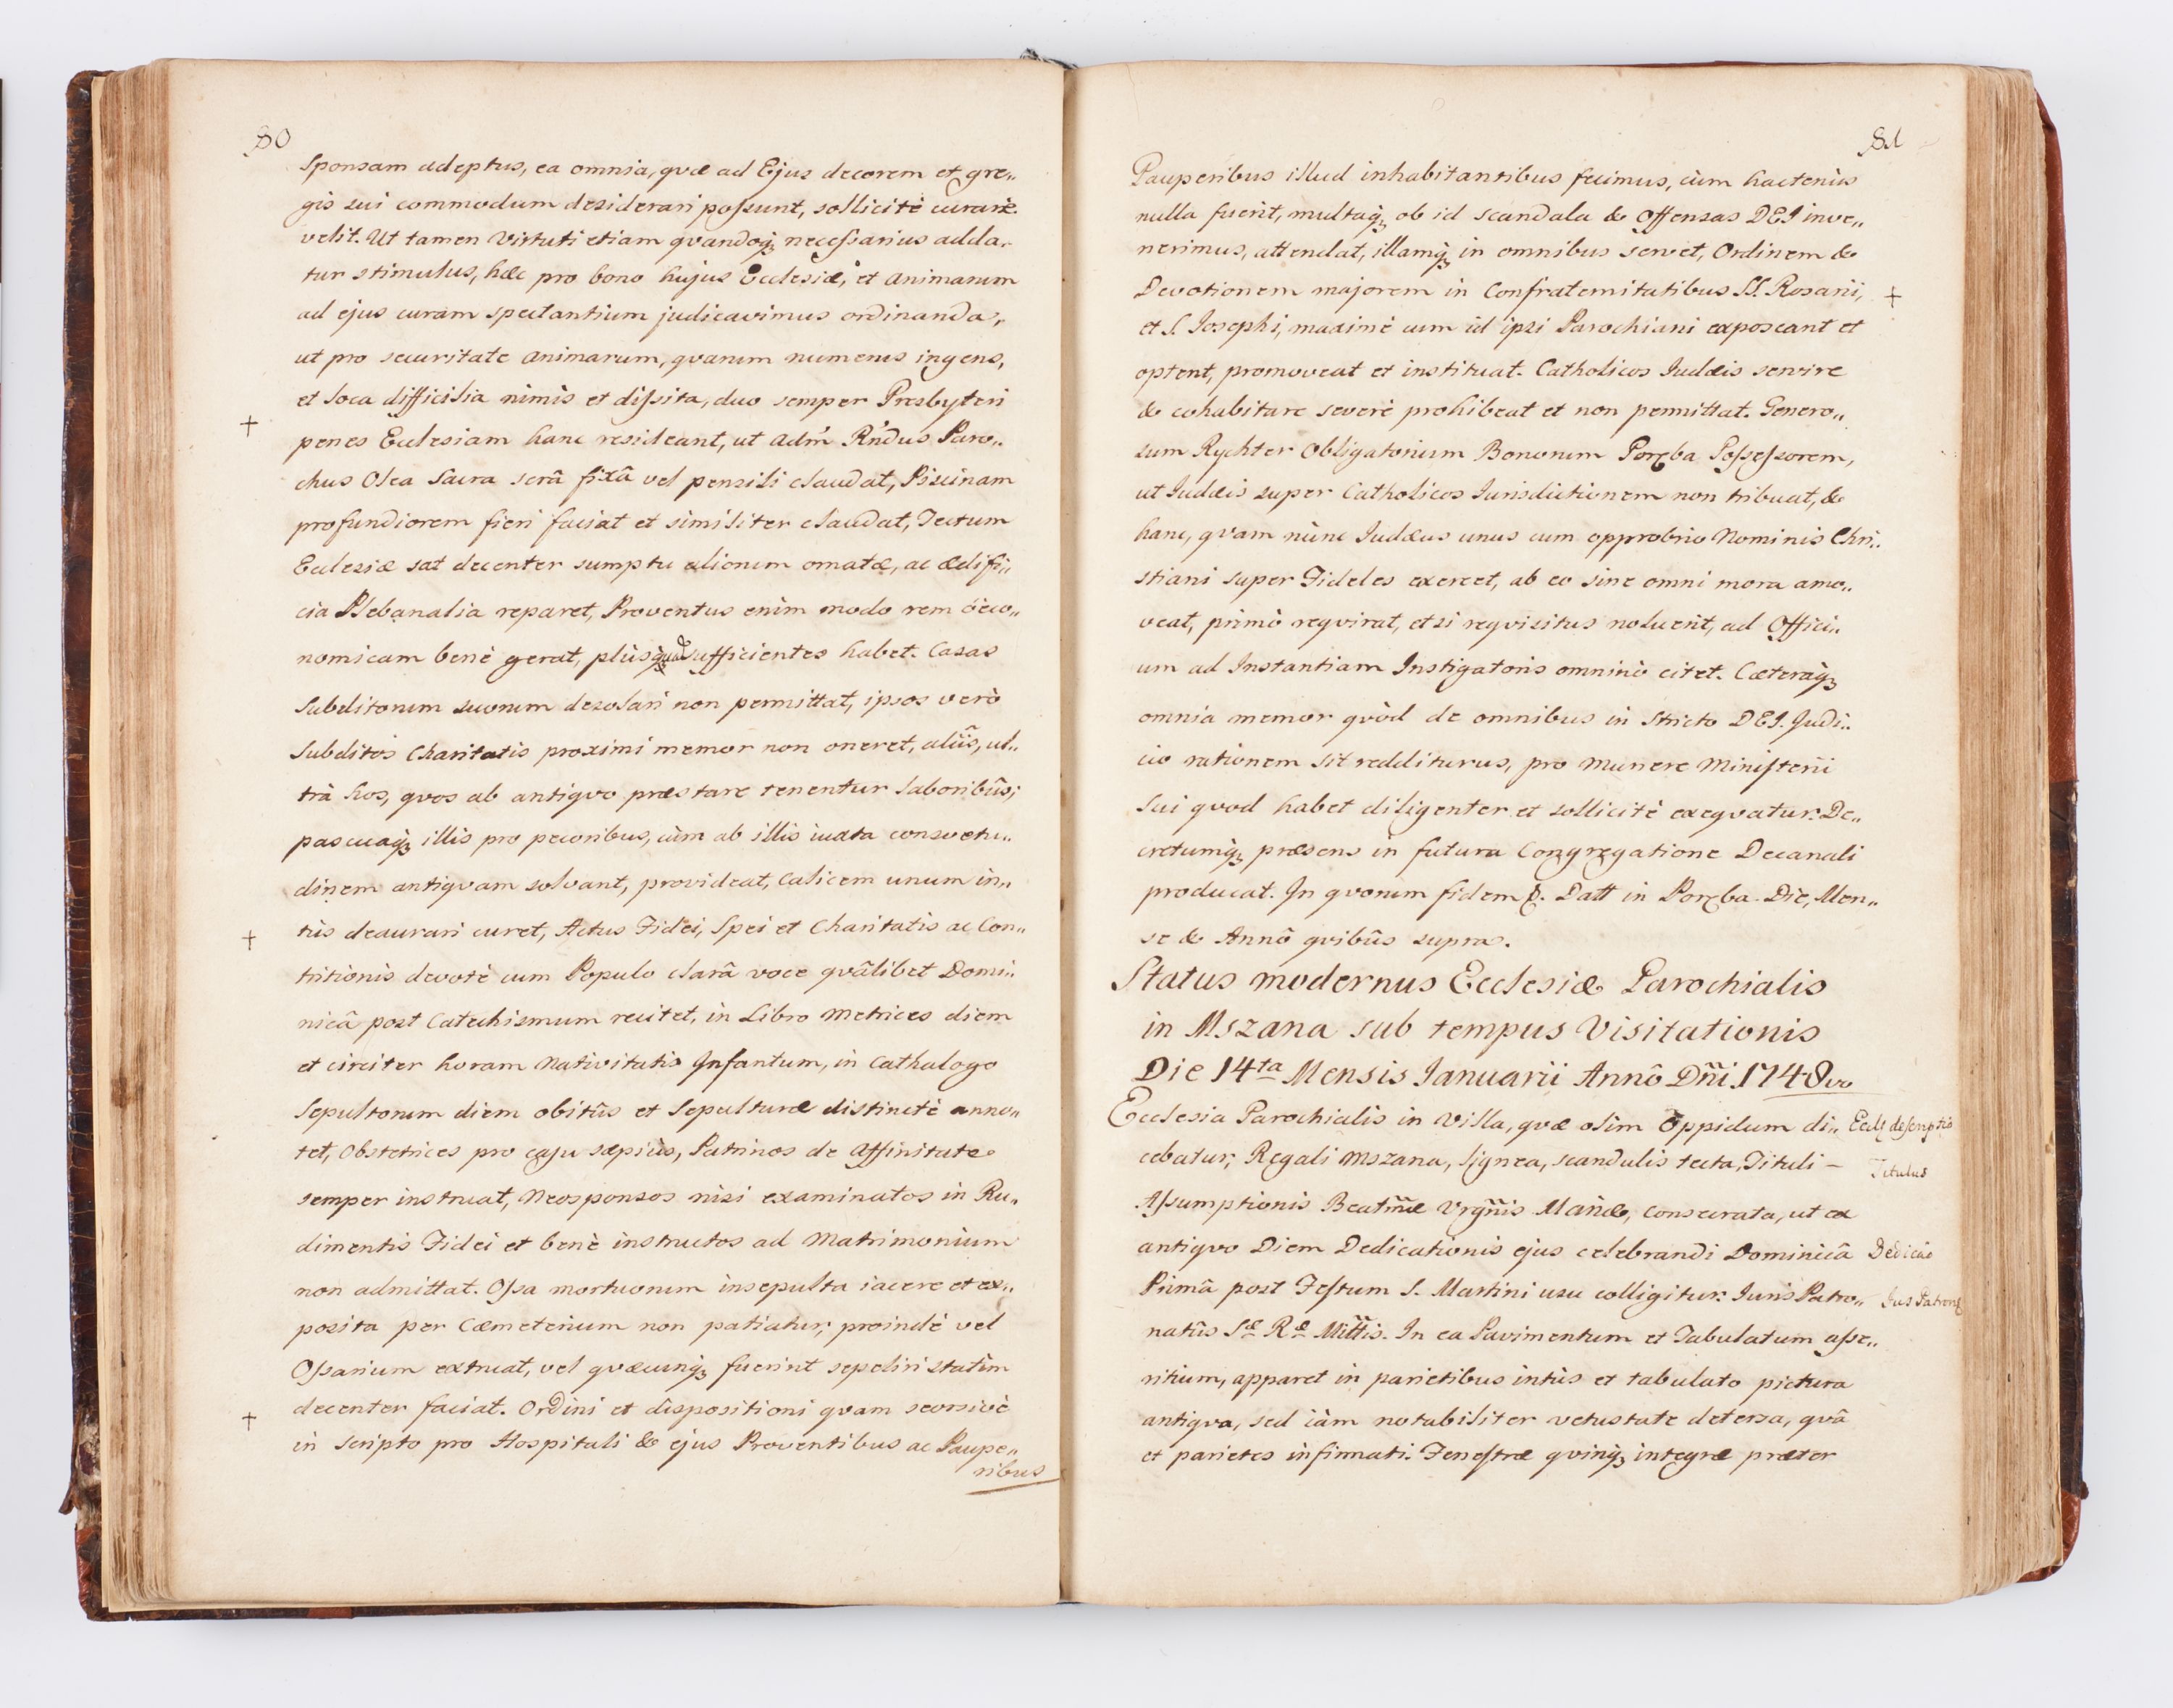 80
Sponsam adeptus, ea omnia, quæ ad Ejus decorem et gre„
gis sui commodum desiderari possunt, sollicitè curare
velit. Ut tamen Virtuti etiam quandoq; necessarius adda„
tur stimulus, hæc pro bono hujus Ecclesiæ, et Animarum
ad ejus curam spectantium judicavimus ordinanda,
ut pro securitate Animarum, quarum numerus ingens,
et loca difficilia nimis et dissita, duo semper Presbyteri
+
penes Ecclesiam hanc resideant, ut Adm̃ Rñdus Paro„
chus Olea Sacra serâ fixâ vel pensili claudat, Piscinam
profundiorem fieri faciat et similiter claudat, Tectum
Ecclesiæ sat decenter sumptu aliorum ornatæ, ac ædifi„
cia Plebanalia reparet, Proventus enim modo rem œco„
nomicam benè gerat, plùsq̀ sufficientes habet. Casas
Subditorum suorum desolari non permittat, ipsos verò
Subditos Charitatis proximi memor non oneret, aliis, ul„
trà hos, quos ab antiquo præstare tenentur laboribûs;
pascuaq; illis pro pecoribus, cùm ab illis iuxta consvetu„
dinem antiquam solvant, provideat, Calicem unum in„
+
tùs deaurari curet, Actus Fidei, Spei et Charitatis ac Con„
tritionis devotè cum Populo clarâ voce quâlibet Domi„
nicâ post Catechismum recitet, in Libro Metrices diem
et circiter horam Nativitatis Infantum, in Cathalogo
Sepultorum diem obitûs et Sepulturæ distinctè anno„
tet, Obstetrices pro casu sæpiùs, Patrinos de Affinitate
semper instruat, Neosponsos nisi examinatos in Ru„
dimentis Fidei et benè instructos ad Matrimonium
non admittat. Ossa mortuorum insepulta iacere et ex„
posita per Cæmeterium non patiatur, proindè vel
Ossarium extruat, vel quæcunq; fuerint sepeliri statìm
+
decenter faciat. Ordini et dispositioni quam seorsivè
in Scripto pro Hospitali & ejus Proventibus ac Paupe„
ribus
81
Pauperibus illud inhabitantibus fecimus, cùm hactenùs
nulla fuerit, multaq; ob id scandala & Offensas DEI inve„
nerimus, attendat, illamq; in omnibus servet, Ordinem &
Devotionem majorem in Confraternitatibus SS. Rosarii,
+
et S. Josephi, maximè cum id ipsi Parochiani exposcant et
optent, promoveat et instituat. Catholicos Iudæis servire
& cohabitare severè prohibeat et non permittat. Genero„
sum Rychter Obligatorium Bonorum Poręba Possessorem,
ut Iudæis super Catholicos Iurisdictionem non tribuat, &
hanc, quam nùnc Iudæus unus cum opprobrio Nominis Chri„
stiani super Fideles exercet, ab eo sine omni mora amo„
veat, primò requirat, et si requisitus noluerit, ad Offici„
um ad Instantiam Instigatoris omninò citet. Cæteràq;
omnia memor quòd de omnibus in Stricto DEI Judi„
cio rationem sit redditurus, pro Munere Ministerii
Sui quod habet diligenter et sollicitè exequatur. De„
cretumq; præsens in futura Congregatione Decanali
producat. In quorum fidem &. Datt in Poręba. Die, Men„
se & Annô quibûs supra.
Status modernus Ecclesiæ Parochialis
in Mszana sub tempus Visitationis
Die 14ta Mensis Ianuarii Annô Dñi 1748vo
Ecclesia Parochialis in Villa, quæ olim Oppidum di„
cebatur, Regali Mszana, lignea, scandulis tecta, Tituli –
Assumptionis Beatm̃æ Vrgñis Mariæ, Consecrata, ut ex
antiquo Diem Dedicationis ejus celebrandi Dominicâ
Primâ post Festum S. Martini usu colligitur. Iuris Patro„
natûs Sæ Ræ Mttis. In ea Pavimentum et Tabulatum asse„
ritium, apparet in parietibus intùs et tabulato pictura
antiqua, sed iàm notabiliter vetustate detersa, quâ
et parietes infirmati. Fenestræ quinq; integræ præter
Eccle descriptio
Titulus
Dedicão
Jus Patrong